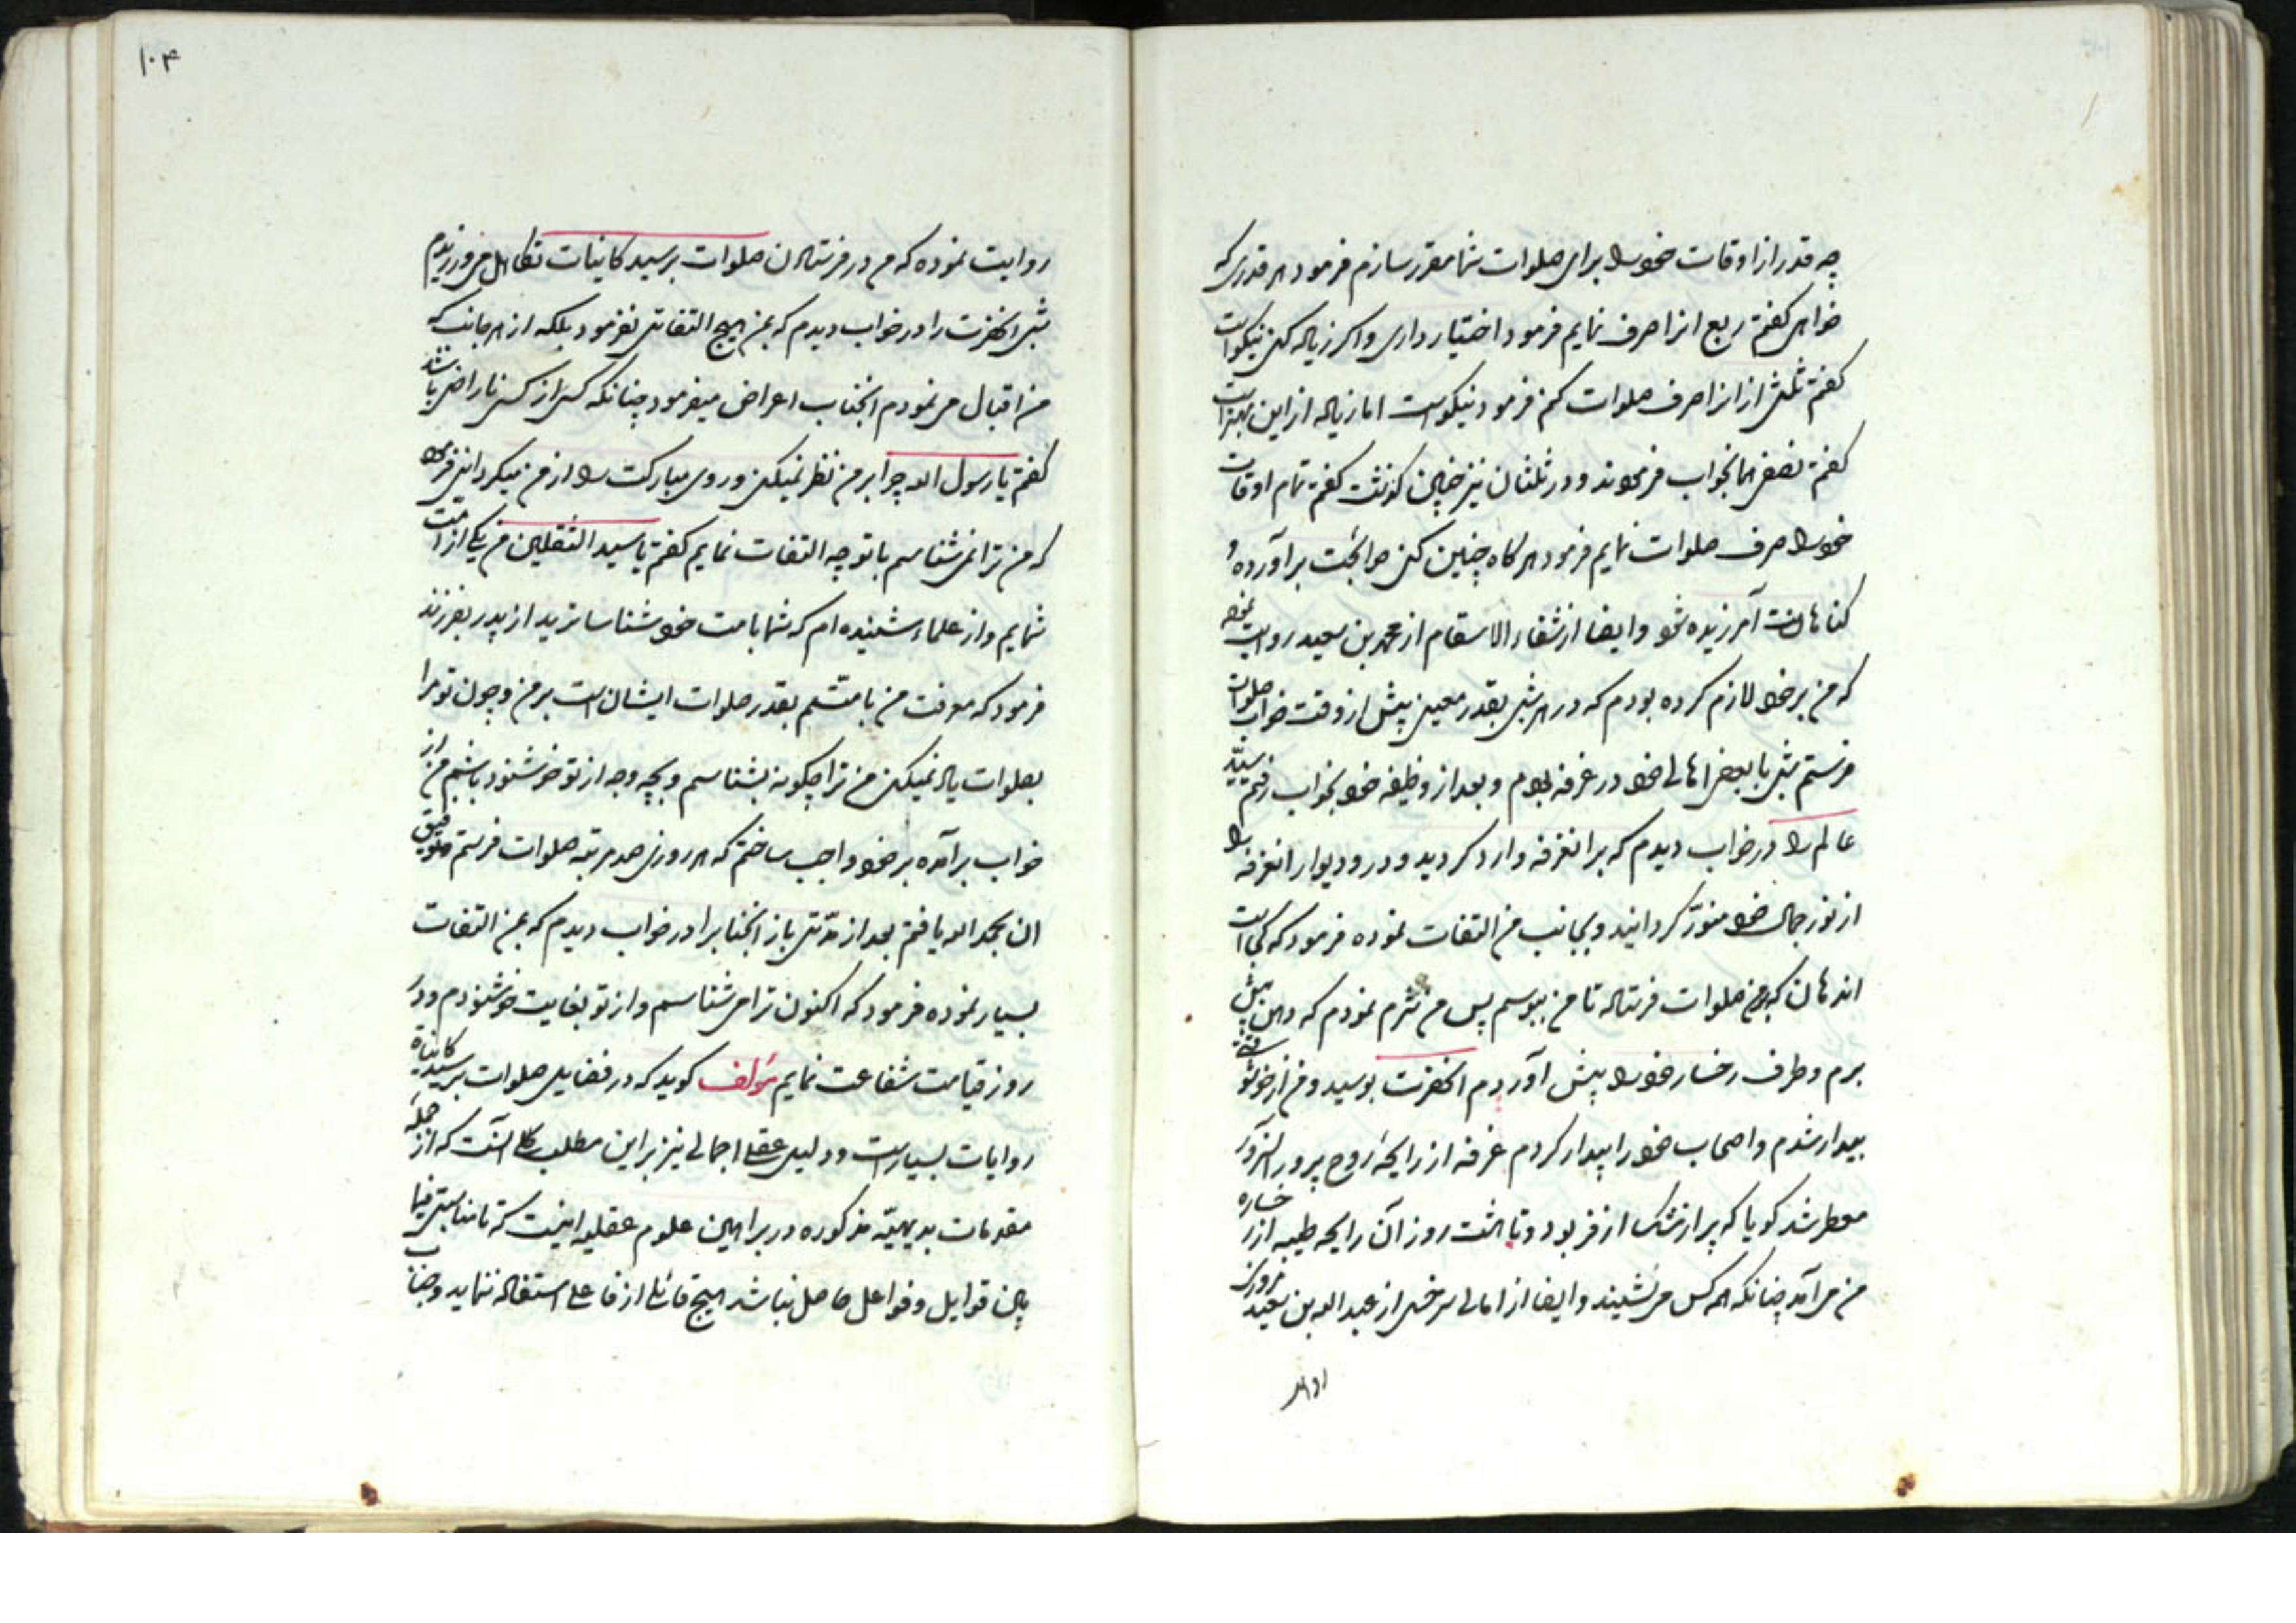 چه قدر از اوقات خود را برای صلوات شما مقرر سازم فرمود هر قدری که
خواهی کفتم ربع انرا صرف نمایم فرمود اختیار داری و اکر زیاده کنی نیکو است
کفتم ثلثی از انرا صرف صلوات کنم فرمود نیکو است اما زیاده از این بهتر است
کفتم نصفی همانجواب فرمودند و در ثلثان نیز چنین کذشت کفتم تمام اوقات
خود را صرف صلوات نمایم فرمود هر کاه چنین کنی حوایجت برآورده و
کناهانت آمرزیده شود و ایضا از شفاء الاسقام از محمد بن سعید روایت نموده
که من بر خود لازم کرده بودم که در هر شبی بقدر معین پیش از وقت خواب صلوات
فرستم شبی با بعضی اهالی خود در غرفه بودم و بعد از وظیفه خود بخواب رفتم سیّد
عالم را در خواب دیدم که بر انغرفه وارد کردید و در و دیوار انغرفه را
از نور جمال خود منوّر کردانید و بجانب من التفات نموده فرمود که کجا است
اندهان که بر من صلوات فرستاده تا من ببوسم پس من شرم نمودم که دهن پیش
برم و طرف رخسار خود را پیش آوردم انحضرت بوسید و من از خوشوقتی
بیدار شدم و اصحاب خود را بیدار کردم غرفه از رایحهٔ روح پرور آنسرور
معطر شد کویا که پر از مشک ازفر بود و تا هشت روز آن رایحه طیبه از رخساره
من می آمد چنانکه همه کس می شنیدند و ایضا از امالی سرخسی از عبد الله بن سعید مروزی
روایت
۱۰۴
روایت نموده که من در فرستادن صلوات بر سید کاینات تکاهل میورزیدم
شبی انحضرت را در خواب دیدم که بمن هیچ التفاتی نفرمود بلکه از هر جانب که
من اقبال می نمودم انجناب اعراض میفرمود چنانکه کسی از کسی ناراضی باشد
کفتم یا رسول الله چرا بر من نظر نمیکنی و روی مبارکت را از من میکردانی فرمود
که من ترا نمی شناسم با تو چه التفات نمایم کفتم یا سید الثقلین من یکی از امت
شمایم و از علماء شنیده ام که شما بامت خود شناساترید از پدر بفرزند
فرمود که معرفت من بامتم بقدر صلوات ایشان است بر من و چون تو مرا
بصلوات یاد نمیکنی من ترا چکونه بشناسم و بچه وجه از تو خوشنود باشم من از
خواب برآمده بر خود واجب ساختم که هر روزی صد مرتبه صلوات فرستم و توفیق
ان بحمد الله یافتم بعد از مدّتی باز انجنابرا در خواب دیدم که بمن التفات
بسیار نموده فرمود که اکنون ترا می شناسم و از تو بغایت خوشنودم و در
روز قیامت شفاعت نمایم مؤلف کوید که در فضایل صلوات بر سید کاینات
روایات بسیار است و دلیل عقلی اجمالی نیز بر این مطلب آنست که از جمله
مقدمات بدیهیّه مذکوره در براهین علوم عقلیه اینست که تا مناسبتی فیما
بین قوابل و فواعل حاصل نباشد هیچ قابلی از فاعلی استفاده ننماید و جناب